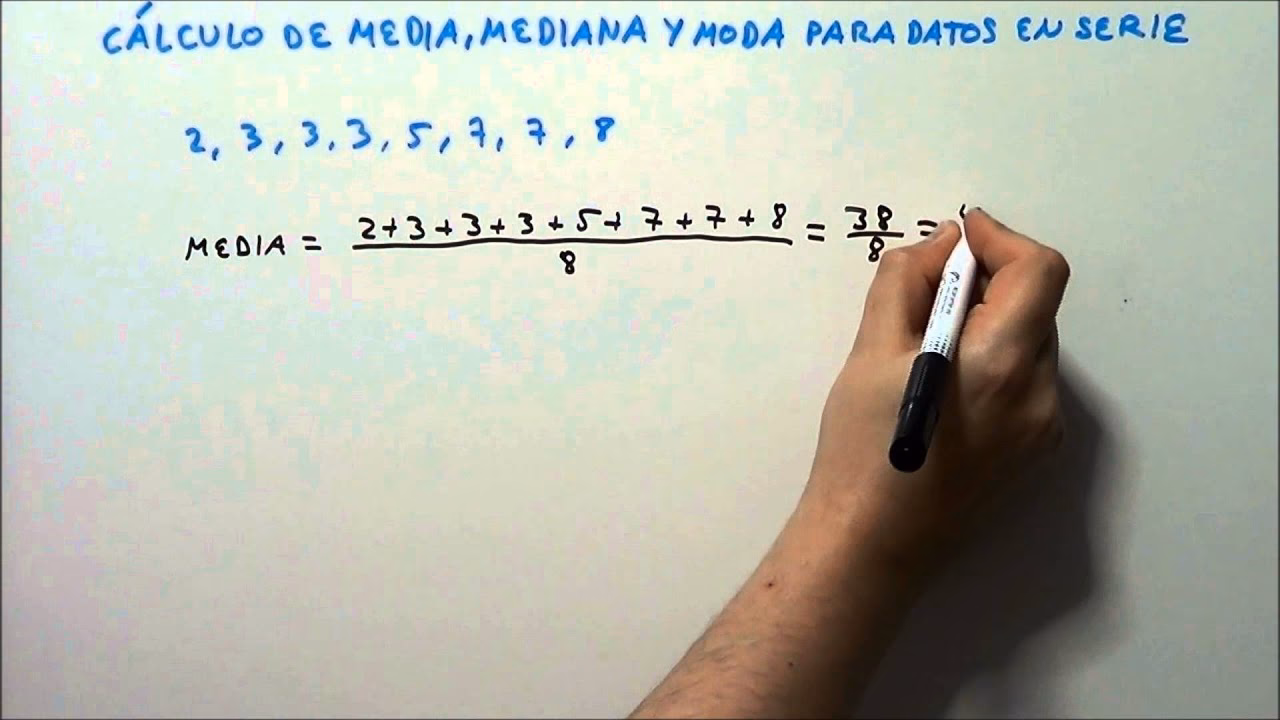 CÁLCULO DE MEDIA, MEDIANA Y MODA PARA DATOS EN SERIE
2, 3, 3, 3, 5, 7, 7, 8
MEDIA = 2+3+3+3+5+7+7+8 / 8 = 38 / 8 =